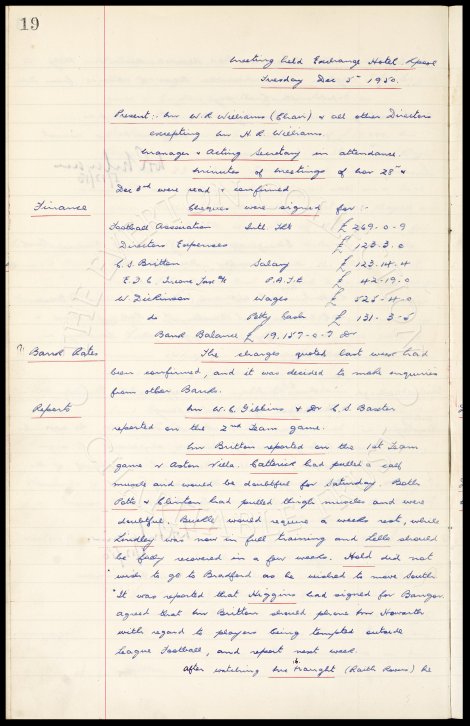 19
Meeting held Exchange Hotel. Lpool
Tuesday Dec 5th 1950.
Present:- Mr W.R. Williams (Chair) & all other Directors
excepting Mr H.R. Williams.
Manager & Acting Secretary in attendance.
Minutes of Meetings of Nov 28th &
Dec 2nd were read & confirmed.
Finance Cheques were signed for:-
Football Association Intl Tkts £ 269-0-9
Directors Expenses £ 123.3.0
C.S. Britton Salary £ 123.14.4
E.F.C. Income Tax a/c P.A.Y.E £ 42-19-0
W. Dickinson Wages £ 525-4-0
do Petty Cash £ 131.3-5
Bank Balance £ 19,157-0-7 Dr
Bank Rates The charges quoted last week had
been confirmed, and it was decided to make enquiries
from other Banks.
Reports Mr W.C. Gibbins & Dr C.S. Baxter
reported on the 2nd Team game.
Mr Britton reported on the 1st Team
game v Aston Villa. Catterick had pulled a calf
muscle and would be doubtful for Saturday. Both
Potts & Clinton had pulled thigh muscles and were
doubtful. Buckle would require a weeks rest, while
Lindley was now in full training and Lello should
be fully recovered in a few weeks. Hold did not
wish to go to Bradford as he wished to move South.
It was reported that Higgins had signed for Bangor.
agreed that Mr Britton should phone Mr Howarth
with regard to players being tempted outside
League Football, and report next week.
After watching Mc Naught (Raith Rovers) he